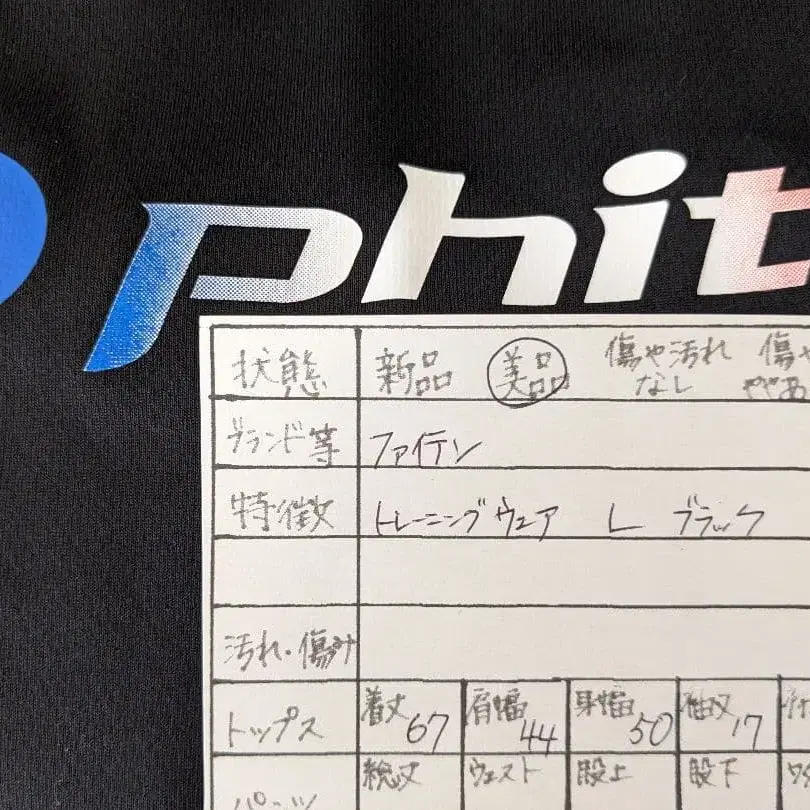 phit
状態 新品 美品 傷や汚れなし 傷や ややあ
ブランド等 ファイテン
特徴 トレーニングウェア L ブラック
汚れ・傷み
トップス 着丈 67 肩幅 44 身幅 50 袖丈 17
パンツ 総丈 ウェスト 股上 股下 ワタ